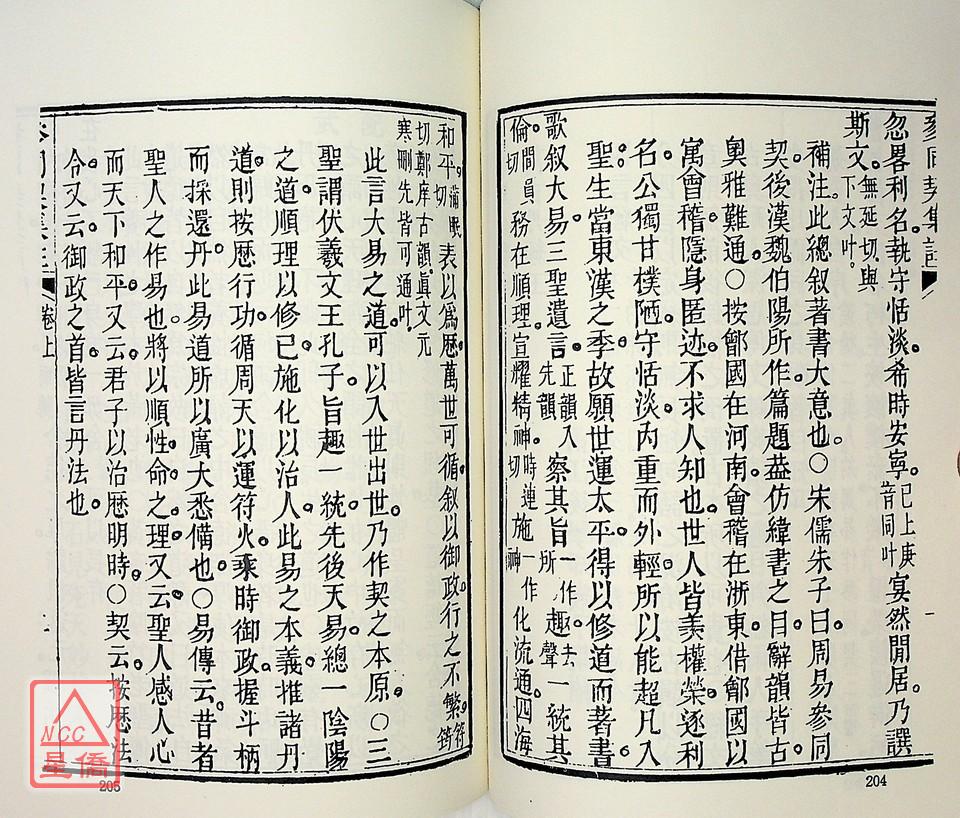 參同契集註
忽畧利名。執守恬淡。希時安寧。已上庚青同叶宴然閒居。乃譔
斯文。無延切。與下文叶。
補注。此總叙著書大意也。○朱儒朱子曰。周易參同
契。後漢魏伯陽所作。篇題葢仿緯書之目。辭韻皆古
奧雅難通。○按鄶國在河南。會稽在浙東。借鄶國以
寓會稽。隱身匿迹。不求人知也。世人皆羡權榮。逐利
名。公獨甘樸陋。守恬淡。内重而外輕。所以能超凡入
聖。生當東漢之季。故願世運太平。得以修道而著書
歌叙大易。三聖遺言。正韻入先韻察其旨一作所趣。去聲一統其
倫。間員切務在順理。宣耀精神。時連切施一作神化流通。四海
204
和平。蒲眠切表以爲厯。萬世可循。叙以御政。行之不繁。符筠切
鄭庠古韻。眞文元寒刪先。皆可通叶。
此言大易之道。可以入世出世。乃作契之本原。○三
聖謂伏羲文王孔子。旨趣一統。先後天易。總一陰陽
之道。順理以修己。施化以治人。此易之本義。推諸丹
道。則按厯行功。循周天以運符火。乘時御政。握斗柄
而採還丹。此易道所以廣大悉備也。○易傳云。昔者
聖人之作易也。將以順性命之理。又云聖人感人心
而天下和平。又云君子以治厯明時。○契云按厯法
令。又云御政之首。皆言丹法也。
卷上
205
NCC
星僑